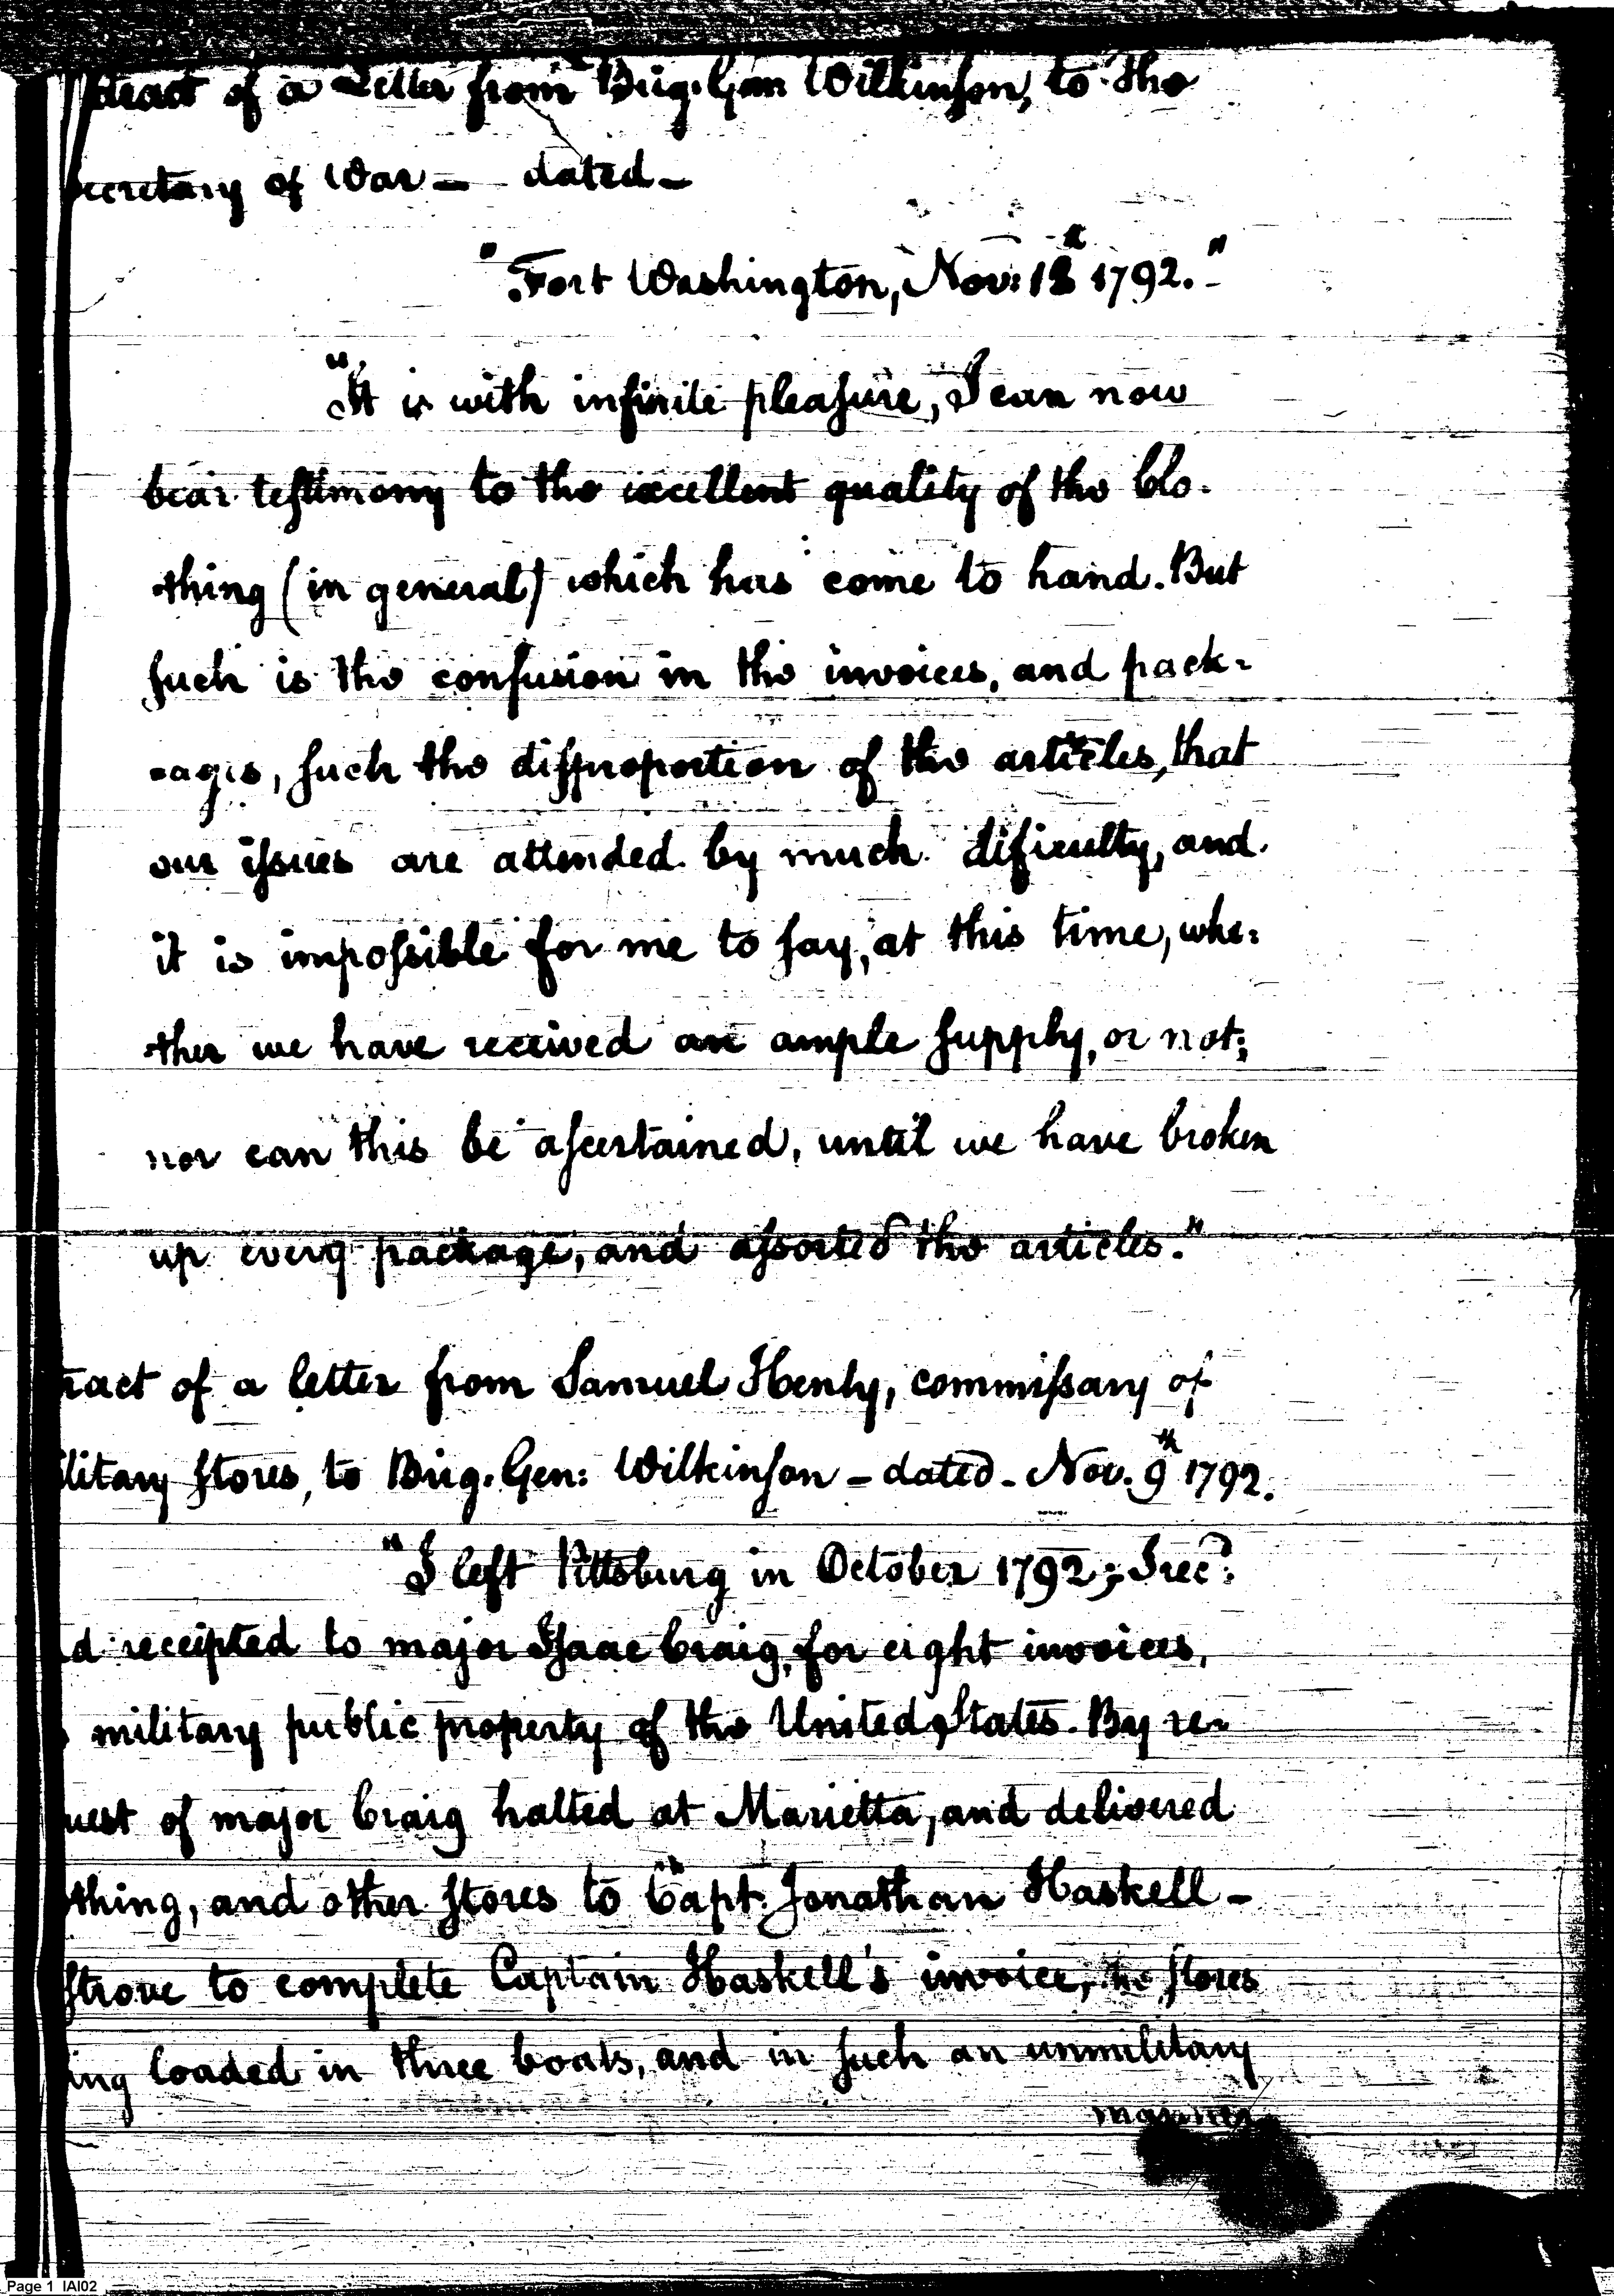 tract of a Letter from Brig. Gen Wilkinson, to the
Secretary of War – dated –
"Fort Washington, Nov: 13th 1792." -
"It is with infinite pleasure, I can now
bear testimony to the excellent quality of the clo-
thing (in general) which has come to hand. But
such is the confusion in the invoices, and pack-
-ages, such the disproportion of the articles, that
our issues are attended by much dificulty, and
it is impossible for me to say, at this time, whe-
ther we have received an ample supply, or not;
nor can this be ascertained, until we have broken
up every package, and assorted the articles."
tract of a letter from Samuel Henly, commissary of
ilitary stores, to Brig. Gen: Wilkinson – dated – Nov. 9th 1792.
"I left Pittsburg in October 1792; I recd:
d receipted to major Isaac Craig, for eight invoices,
military public property of the United States. By re-
uest of major Craig halted at Marietta, and delivered
othing, and other stores to Capt. Jonathan Haskell –
strove to complete Captain Haskell's invoice, the stores
ing loaded in three boats, and in such an unmilitary
manner
Page 1 IAI02